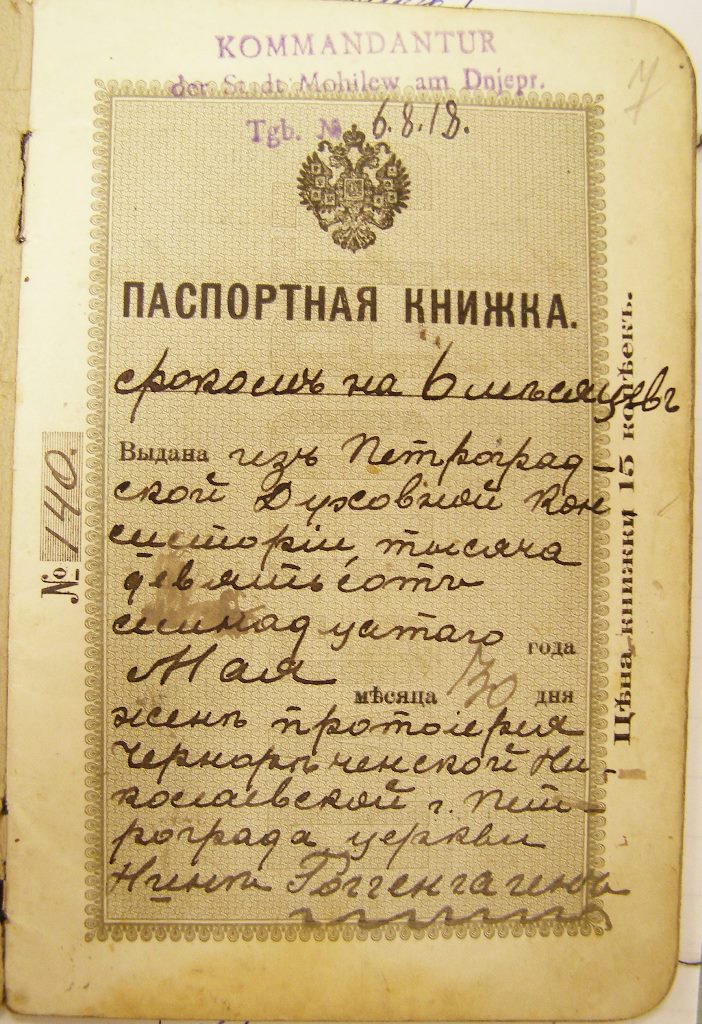 KOMMANDANTUR
der Stadt Mohilew am Dnjepr.
Tgb. № 6.8.18.
7
ПАСПОРТНАЯ КНИЖКА.
срокомъ на 6 мѣсяцевъ
Выдана изъ Петроград-
ской Духовной Кон
систоріи, тысяча
девятьсотъ
семнадцатаго года
Мая мѣсяца 30 дня
женѣ протоіерея
Чернорѣченской Ни-
колаевской г. Пет-
рограда церкви
Нинѣ Гоггенгагенъ
№ 140.
Цѣна книжки 15 копѣекъ.